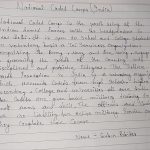 National Cadet Corps (India)
National Cadet Corps is the youth wing of the
Indian Armed Forces with its headquarters in
New Delhi. It is open to school and college students
on voluntary basis as a Tri-Services Organisation,
comprising the Army, Navy and the Air Force, engaged
in grooming the youth of the country into
disciplined and patriotic citizens. The National
Cadet Corps in India is a voluntary
which recruits cadets from
Secondary, College and universities all over India.
The Cadets are given basic military training in
small arms and drill. The officers and cadets
have no liability for active military service
once they complete their course.
Name -